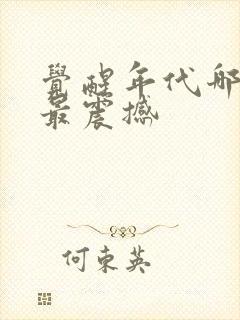 覺醒年代那
最震撼
何東英